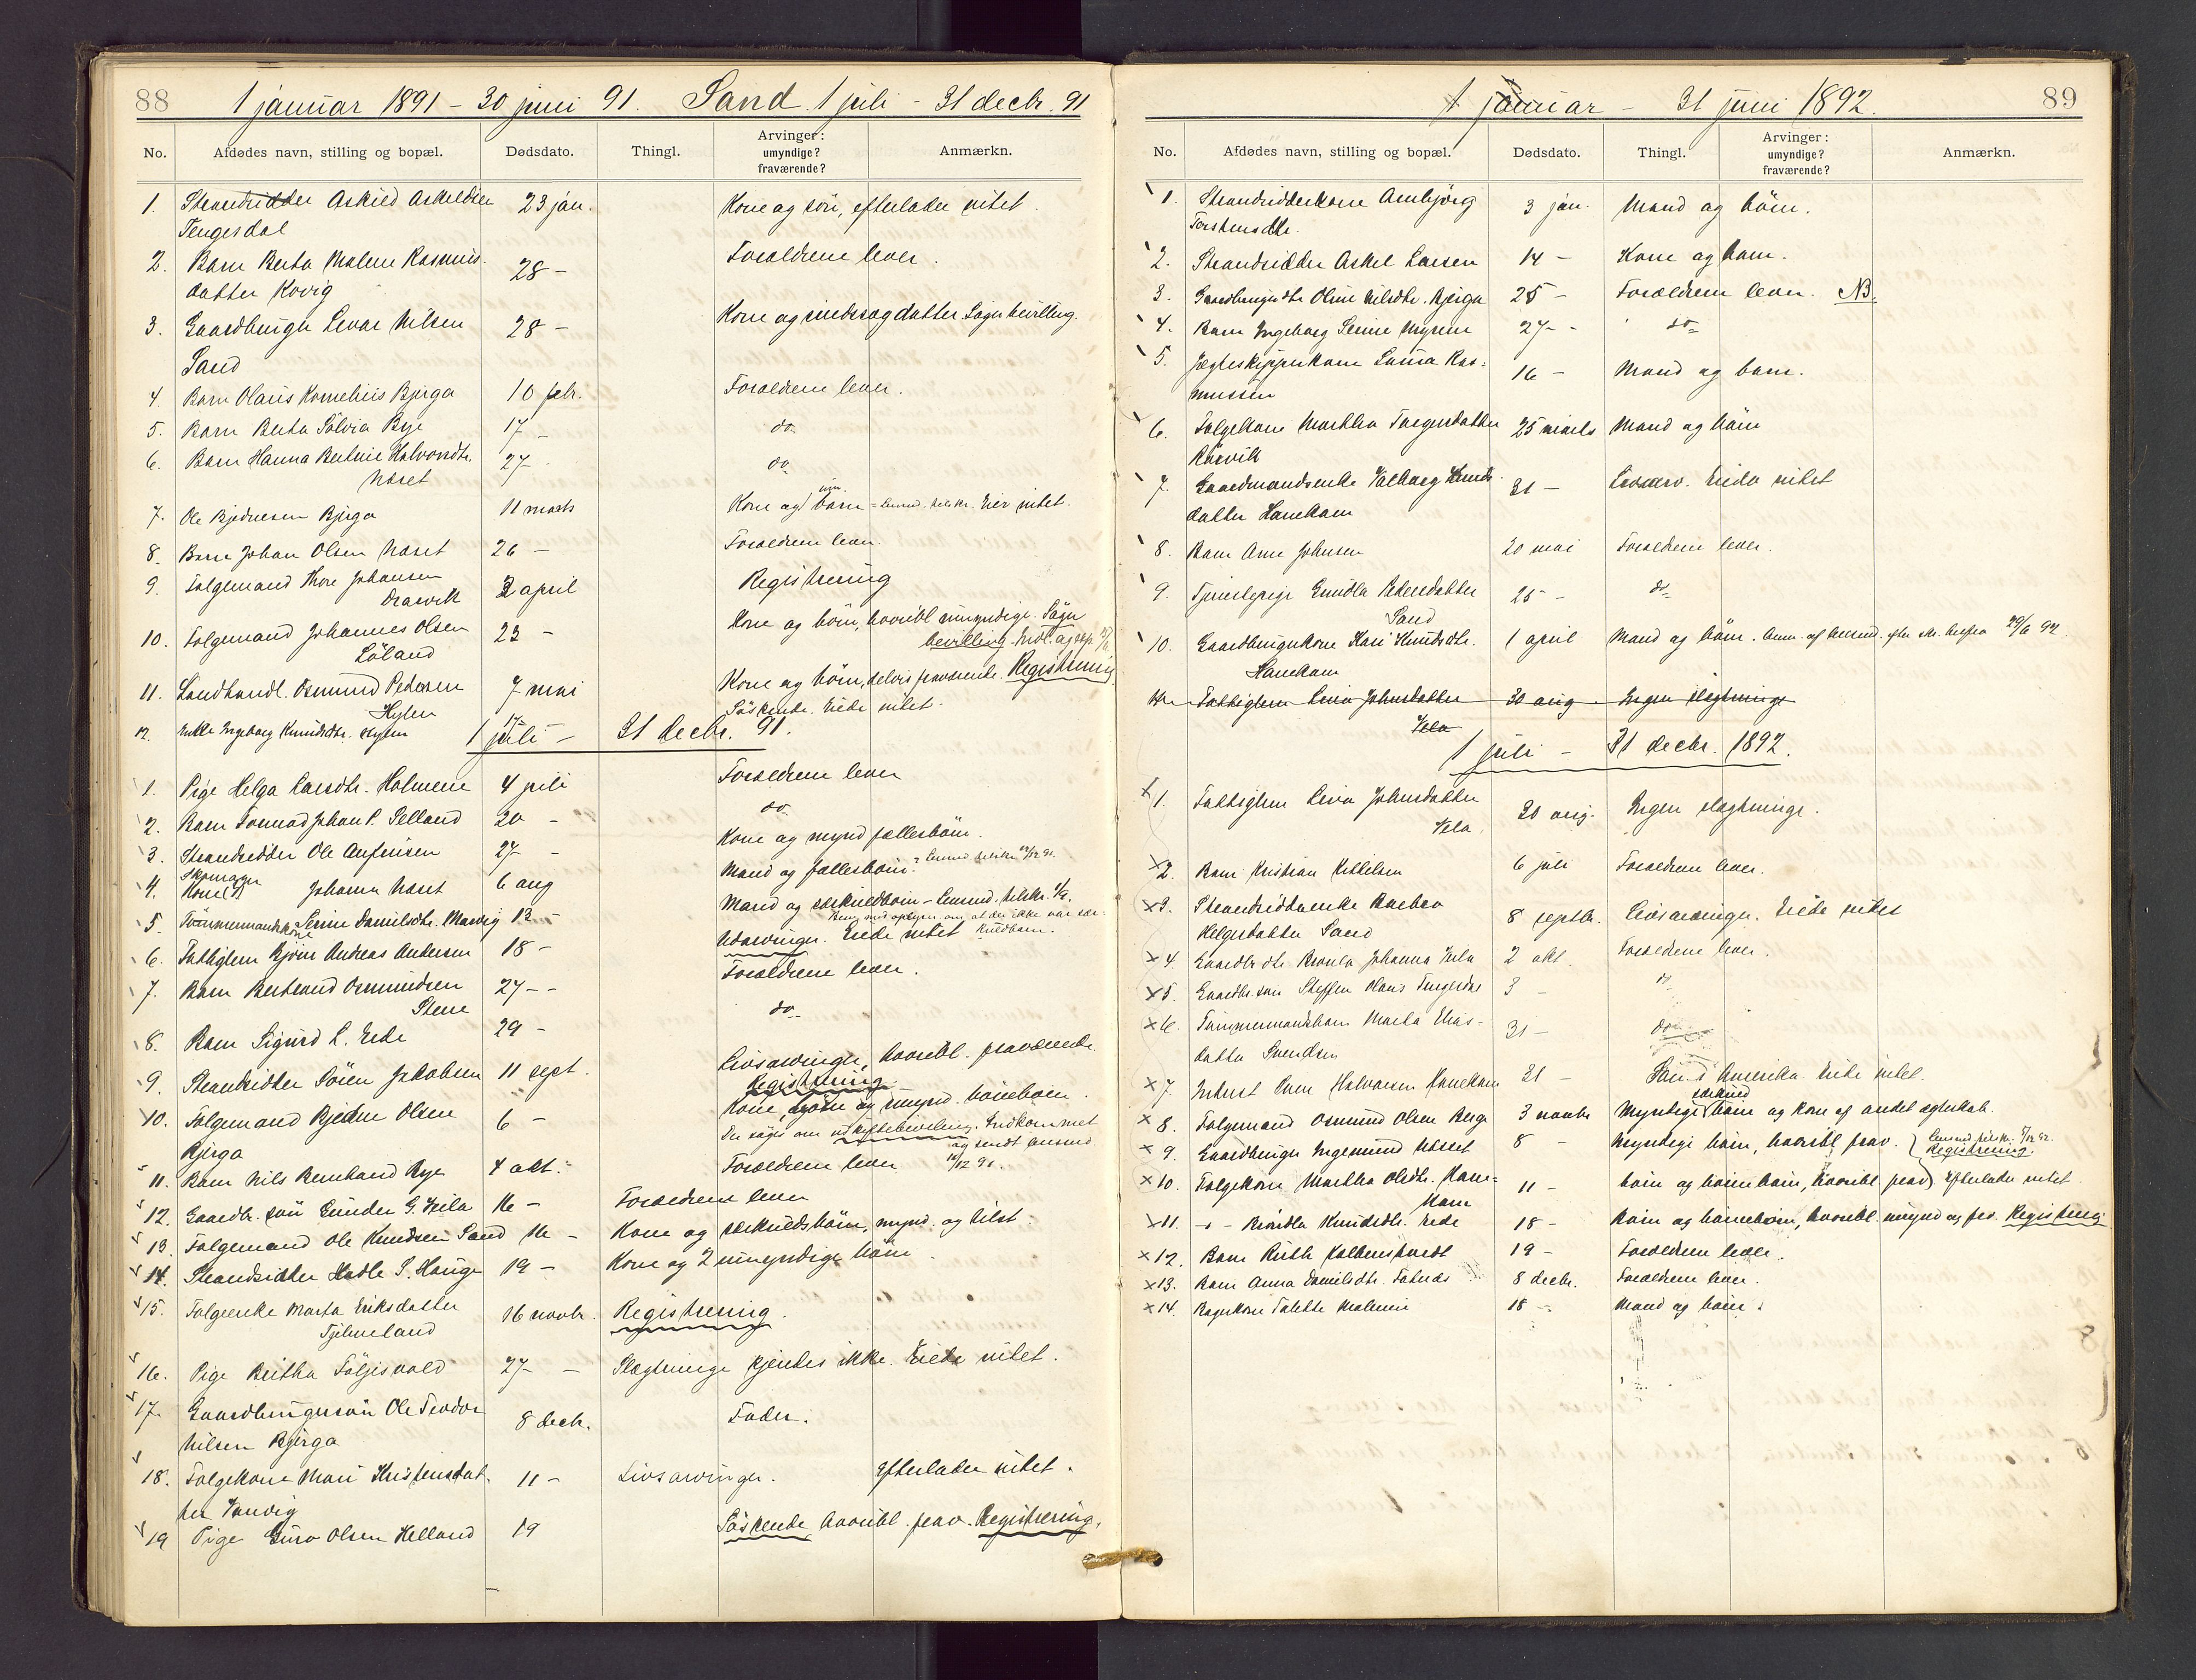 88
1 januar 1891 – 30 juni 91. Sand. 1 juli – 31 decbr. 91
No. Afdødes navn, stilling og bopæl. Dødsdato. Thingl. Arvinger: umyndige? fraværende? Anmærkn.
1. Strandsidder Askild Askeldsen 23 jan. Kone og søn, efterlader intet.
Tengesdal
2. Barn Berta Malene Rasmus- 28 – Forældrene lever.
datter Kovig
3. Gaardbruger Nilsen 28 – Kone og datter. Søger bevilling.
Sand
4. Barn Olaus Kornelius Bjerga 10 febr. Forældrene lever.
5. Barn Berta Solvia Bye 17 – do
6. Barn Hanna Bertine Halvorsdtr. 27 – do
Næset
7. Ole Bjednesen Bjerga 11 marts Kone og um. børn = Eier intet.
8. Barn Johan Olsen Næset 26 – Forældrene lever.
9. Folgemand Thore Johansen 2 april Registrering
Drarvik
10. Folgemand Johannes Olsen 23 – Kone og børn, hvoribl. umyndige. Søger
Løland bevilling.
11. Landhandl. Osmund Pedersen 7 mai Kone og børn, delvis fraværende. Registrering
Hylen
12. Enke Ingeborg Knudsdtr. Hylen 17 – Søskende. Eiede intet.
1 juli – 31 decbr. 91.
1. Pige Helga Larsdtr. Holmene 4 juli Forældrene lever
2. Barn Tormod Johan P. Selland 20 – do.
3. Strandsidder Ole Anfinsen 27 – Kone og mynd fællesbørn.
4. Skomager Kone (?) Johanna Næset 6 aug Mand og fællesbørn?
5. Tømmermandskone Serine Danielsdtr. Marvig 12 – Mand og særkuldbørn –
særkuldbarn.
6. Fattiglem Bjørn Andreas Andersen 18 – Udarvinger. Eiede intet
7. Barn Bertrand Osmundsen 27 – Forældrene lever.
Stene
8. Barn Sigurd L. Eide 29 – do
9. Strandsidder Søren Jakobsen 11 sept. Livsarvinger, hvoribl. fraværende.
Registrering
10. Folgemand Bjedne Olsen 6 – Kone, børn og umynd. børnebørn.
Bjerga Der søges om uskiftebevilling.
11. Barn Nils Bernhard Bye 4 okt. Forældrene lever 16/12 91.
12. Gaardbr. søn Gunder G. Vela 16 – Forældrene lever
13. Folgemand Ole Knudsen Sand 16 – Kone og særkuldsbørn, mynd. og tilst.
14. Strandsidder Hadle S. Hauge 19 – Kone og 2 umyndige børn.
15. Folgeenke Marta Eriksdatter 16 novbr. Registrering.
Tjelmeland
16. Pige Britha Følgisvold 27 – Slægtninge kjendes ikke. Eiede intet.
17. Gaardbrugersøn Ole Teodor 8 decbr. Fader.
Nilsen Bjerga
18. Folgekone Mari Kristensdat- 11 – Livsarvinger. Efterlader intet.
ter Vanvig
19 Pige Guro Olsen Helland 19 Søskende, hvoribl. frav. Registrering.
89
1 januar – 31 juni 1892.
No. Afdødes navn, stilling og bopæl. Dødsdato. Thingl. Arvinger: umyndige? fraværende? Anmærkn.
1. Strandsidderkone Ambjørg 3 jan. Mand og børn.
Torstensdtr.
2. Strandsidder Askel Larsen 14 – Kone og barn.
3. Gaardbrugerdtr. Oline Nilsdtr. Bjerga 25 – Forældrene lever. NB.
4. Barn Ingeborg Serine Myrene 27 – do
5. Jægteskipperkone Laura Ras- 16 – Mand og barn.
mussen
6. Folgekone Martha Torgersdatter 25 marts Mand og børn
Rørvik
7. Gaardmandsenke Valborg Knuds- 31 – Livsarv. Eiede intet
datter Hanekam
8. Barn Anne Johnsen 20 mai Forældrene lever.
9. Tjenestepige Gundla Pedersdatter 25 – do
Sand
10. Gaardbrugerkone Kari Knudsdtr. 1 april Mand og børn.
Hanekam
Fattiglem Livia Johnsdatter 20 aug Ingen slægtninge
Vela
1 juli – 31 decbr. 1892.
1. Fattiglem Livia Johnsdatter 20 aug. Ingen slægtninge.
Vela.
2. Barn Kristian Kittilsen 6 juli Forældrene lever.
3. Strandsidderenke Barbra 8 septbr. Livsarvinger. Eiede intet
Helgesdatter Sand
4. Gaardbr. dtr. Johanna Vela 2 okt. Forældrene lever.
5. Gaardbr. søn Steffen Olaus Tengesdal 3 – do
6. Tømmermandsbarn Marta Elias- 31 – do
datter Svendsen
7. Inderst Sven Halvorsen Hanekam 31 Søn i Amerika. Eiede intet.
8. Folgemand Osmund Olsen Berge 3 novbr. Myndige særkuld børn og kone af andet ægteskab.
9. Gaardbruger Ingemund Næset 8 – Myndige børn, hvoribl. frav. Registrering.
10. Folgekone Martha Olsdtr. Hane- 11 – børn og børnebørn, hvoribl. frav. Efterlader intet.
kam
11. –"– Brondla Knudsdtr. Eide 18 – Børn og børnebørn, hvoribl. umynd og frv. Registrering
12. Barn Ruth Kaltenstvedt 19 – Forældrene lever.
13. Barn Anna Danielsdtr. Fatnæs 8 decbr. Forældrene lever.
14. Bagerkone Talette Malenin 18 – Mand og børn.